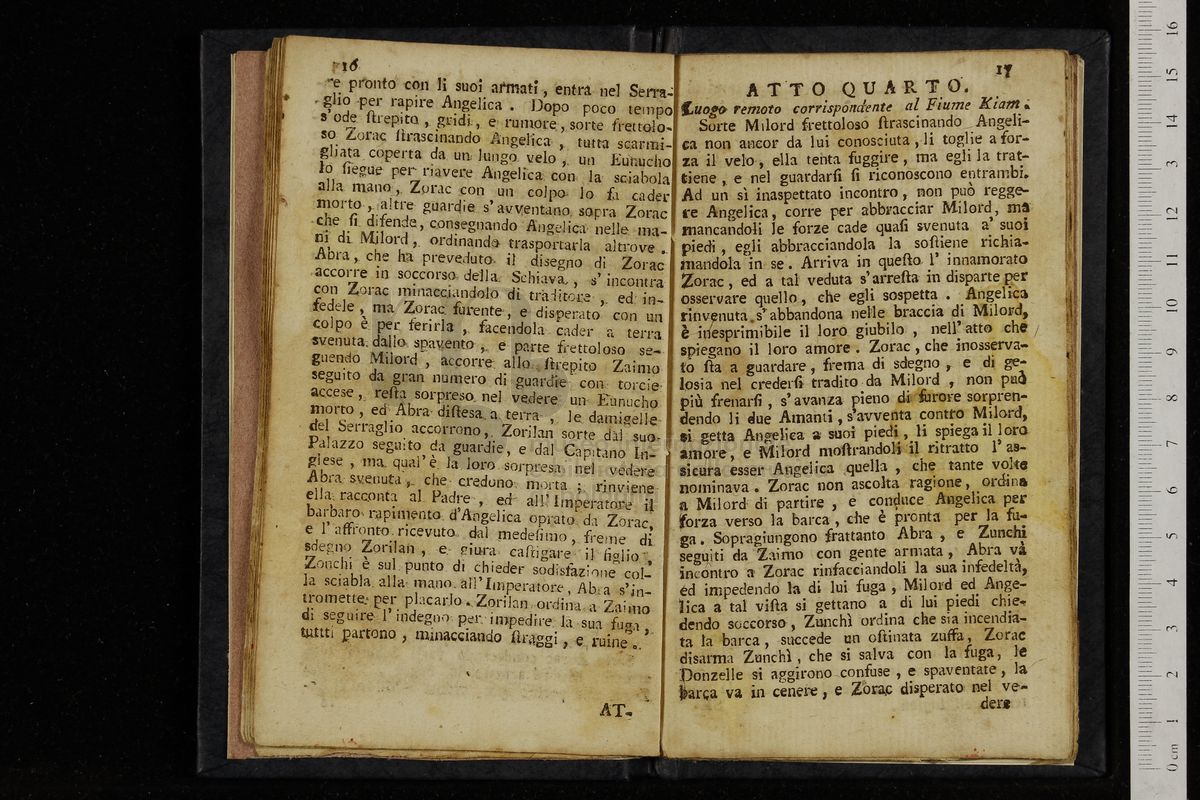 16
e pronto con li suoi armati, entra nel Serra-
glio per rapire Angelica. Dopo poco tempo
s'ode ſtrepito, gridi, e rumore, sorte frettolo-
so Zorac ſtrascinando Angelica, tutta scarmi-
gliata coperta da un lungo velo, un Eunucho
lo ſiegue per riavere Angelica con la sciabola
alla mano, Zorac con un colpo lo fa cader
morto, altre guardie s'avventano sopra Zorac
che ſi difende, consegnando Angelica nelle ma-
ni di Milord, ordinando trasportarla altrove.
Abra, che ha preveduto il disegno di Zorac
accorre in soccorso della Schiava, s'incontra
con Zorac minacciandolo di traditore, ed in-
fedele, ma Zorac furente, e disperato con un
colpo è per ferirla, facendola cader a terra
svenuta dallo spavento, e parte frettoloso se-
guendo Milord, accorre allo ſtrepito Zaimo
seguito da gran numero di guardie con torcie
accese, reſta sorpreso nel vedere un Eunucho
morto, ed Abra diſtesa a terra, le damigelle
del Serraglio accorrono, Zorilan sorte dal suo
Palazzo seguito da guardie, e dal Capitano In-
glese, ma qual'è la loro sorpresa nel vedere
Abra svenuta, che credono morta; rinviene
ella racconta al Padre, ed all'Imperatore il
barbaro rapimento d'Angelica oprato da Zorac,
e l'affronto ricevuto dal medeſimo, freme di
sdegno Zorilan, e giura caſtigare il figlio,
Zonchi è sul punto di chieder sodisfazione col-
la sciabla alla mano all'Imperatore, Abra s'in-
tromette per placarlo. Zorilan ordina a Zaimo
di seguire l'indegno per impedire la sua fuga,
tuttti partono, minacciando ſtraggi, e ruine.
AT-
17
ATTO QUARTO.
Luogo remoto corrispondente al Fiume Kiam.
Sorte Milord frettoloso ſtrascinando Angeli-
ca non ancor da lui conosciuta, li toglie a for-
za il velo, ella tenta fuggire, ma egli la trat-
tiene, e nel guardarſi ſi riconoscono entrambi.
Ad un sì inaspettato incontro, non può regge-
re Angelica, corre per abbracciar Milord, ma
mancandoli le forze cade quaſi svenuta a' suoi
piedi, egli abbracciandola la soſtiene richia-
mandola in se. Arriva in queſto l'innamorato
Zorac, ed a tal veduta s'arreſta in disparte per
osservare quello, che egli sospetta. Angelica
rinvenuta s'abbandona nelle braccia di Milord,
è inesprimibile il loro giubilo, nell'atto che
spiegano il loro amore. Zorac, che inosserva-
to ſta a guardare, frema di sdegno, e di ge-
losia nel crederſi tradito da Milord, non può
più frenarſi, s'avanza pieno di furore sorpren-
dendo li due Amanti, s'avventa contro Milord,
si getta Angelica a suoi piedi, li spiega il loro
amore, e Milord moſtrandoli il ritratto l'as-
sicura esser Angelica quella, che tante volte
nominava. Zorac non ascolta ragione, ordina
a Milord di partire, e conduce Angelica per
forza verso la barca, che è pronta per la fu-
ga. Sopragiungono frattanto Abra, e Zunchi
seguiti da Zaimo con gente armata, Abra và
incontro a Zorac rinfacciandoli la sua infedeltà,
ed impedendo la di lui fuga, Milord ed Ange-
lica a tal viſta si gettano a di lui piedi chie-
dendo soccorso, Zunchì ordina che sia incendia-
ta la barca, succede un oſtinata zuffa, Zorac
disarma Zunchì, che si salva con la fuga, le
Donzelle si aggirono confuse, e spaventate, la
barca va in cenere, e Zorac disperato nel ve-
dere